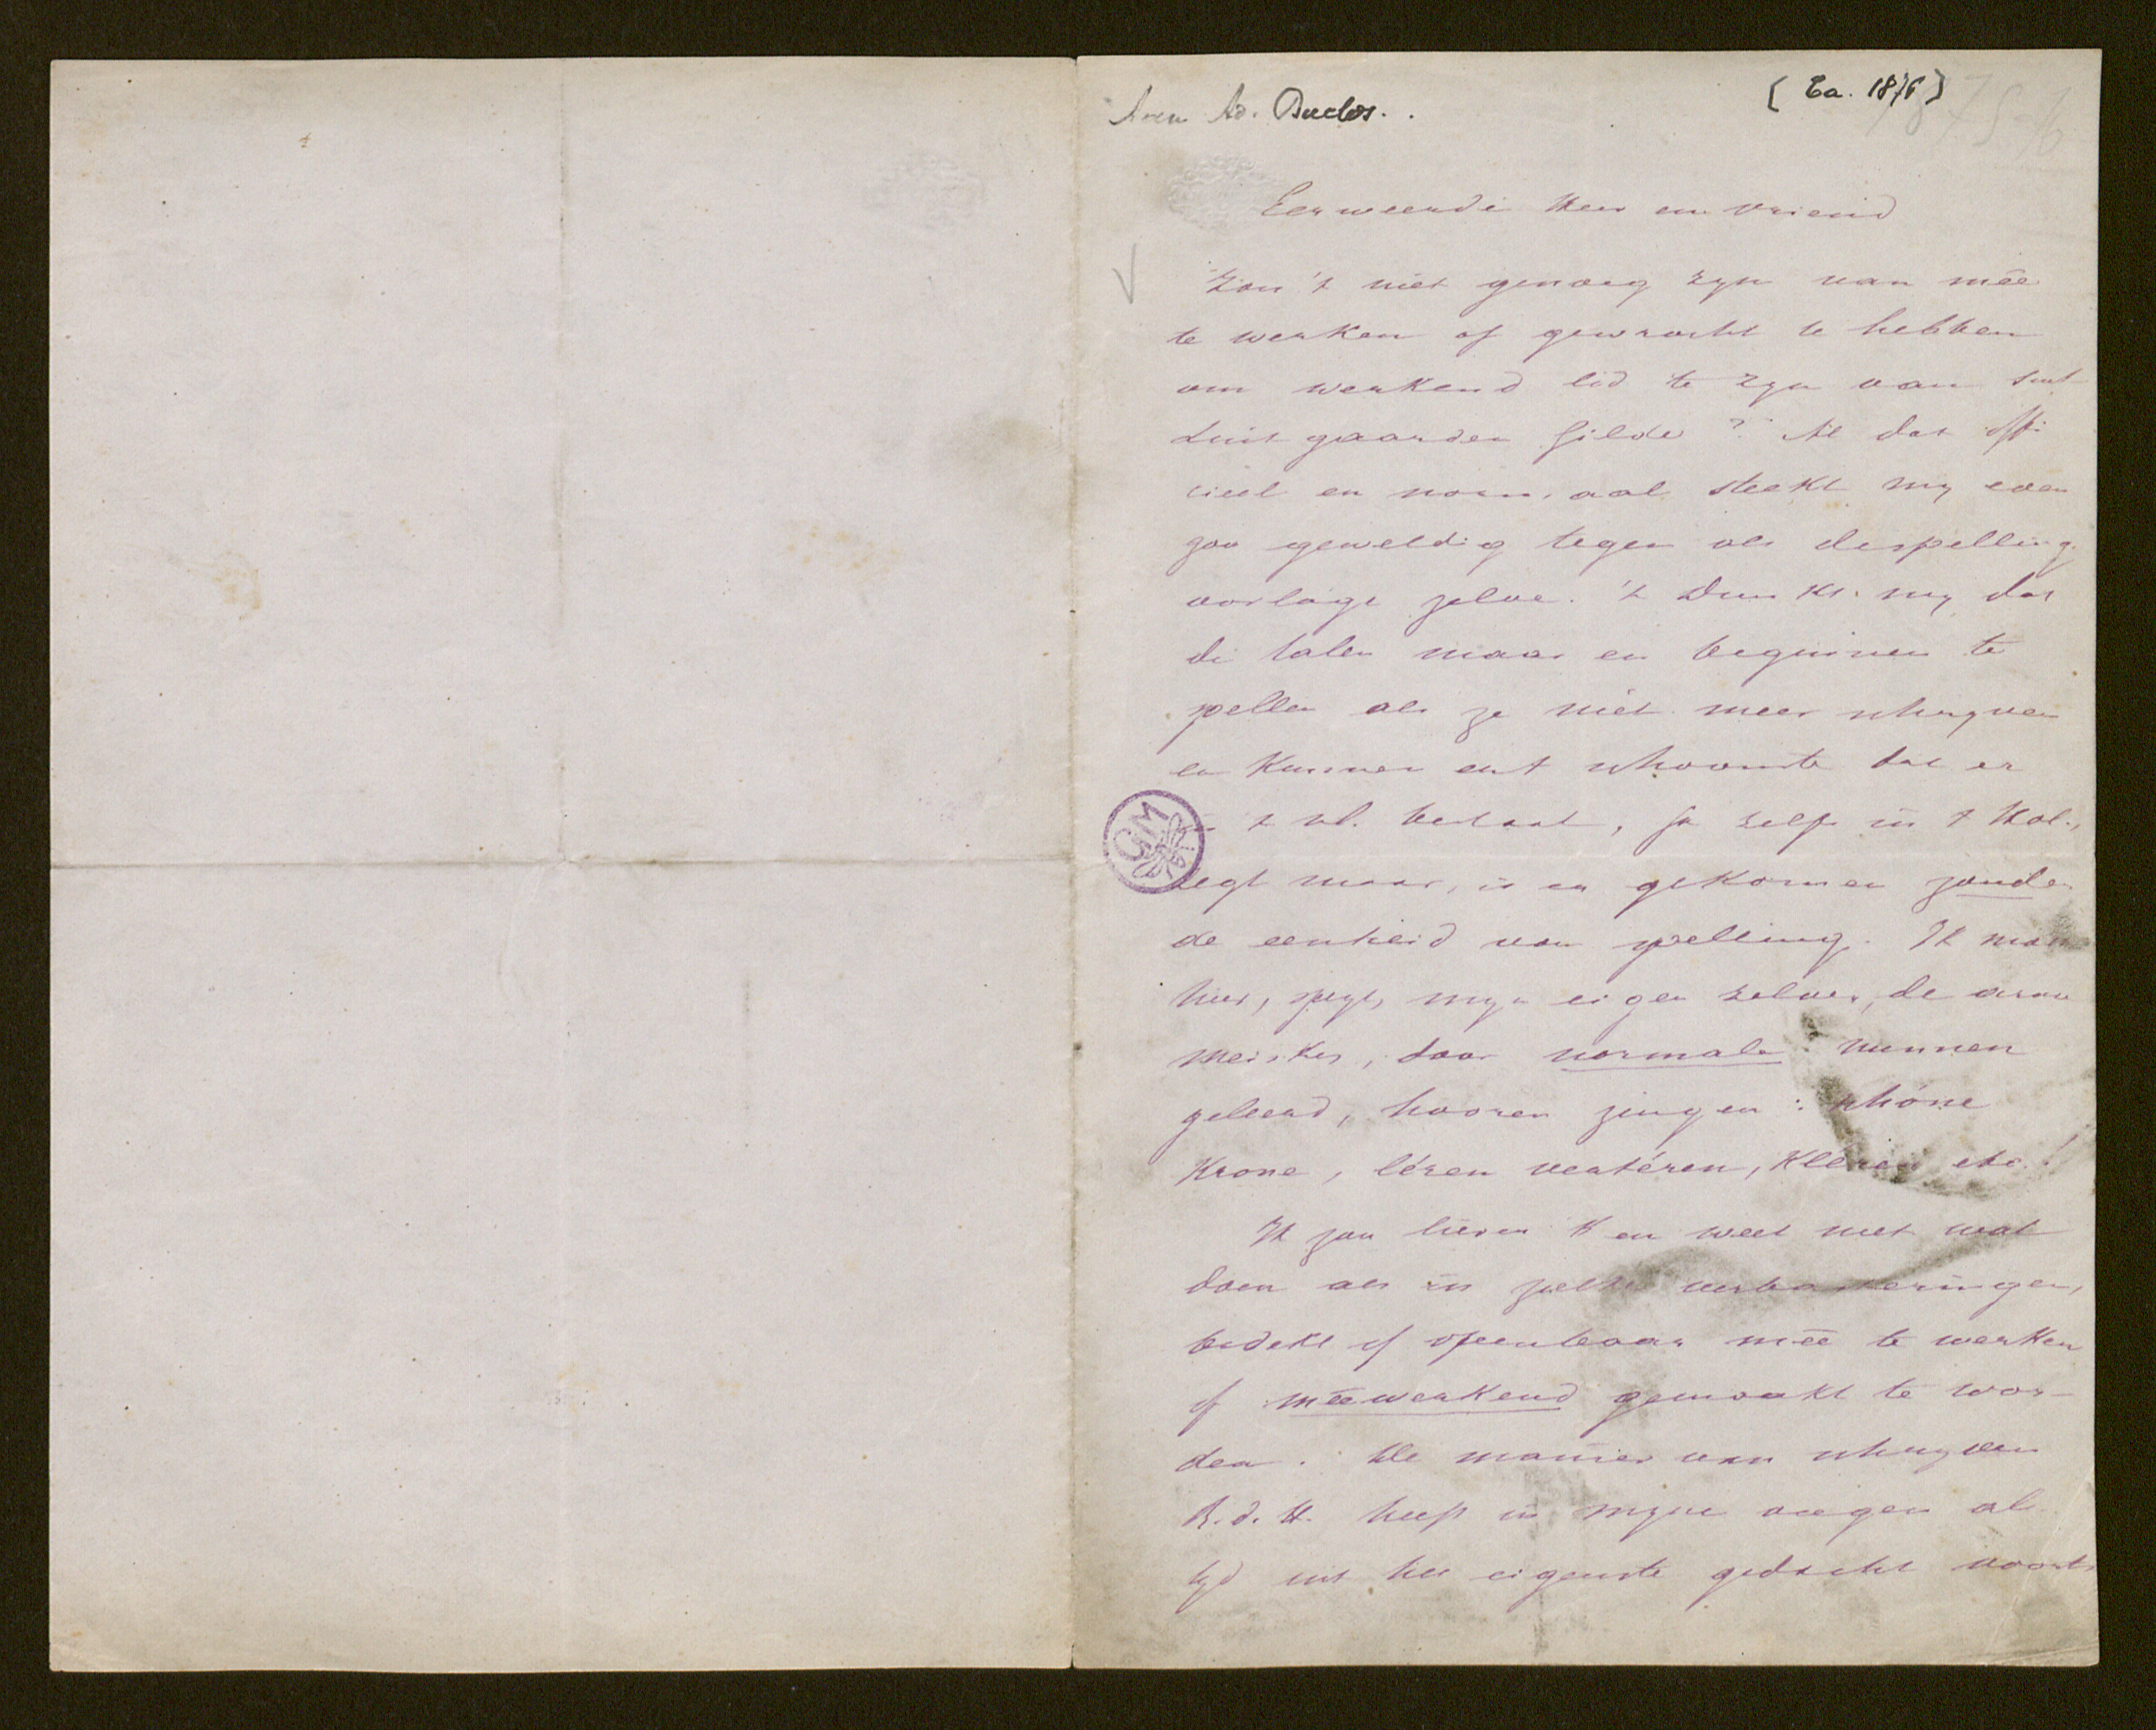 Aan Ad. Duclos.
[Ca. 1876]
Eerweerde Heer en vriend
Zou 't niet genoeg zyn van mêe
te werken of gewracht te hebben
om werkend lid te zyn van sint
Luit gaarden Gilde? Al dat offi
cieel en normaal steekt my even
zoo geweldig tegen als de spelling
voorlage zelve. 't Dunkt my dat
de talen maar en beginnen te
spellen als ze niet meer schryven
en kunnen en 't schoonste dat er
in 't vl. bestaat, ja zelfs in 't Hol.,
zegt maar, is en gekomen zonder
de eenheid van spelling. Ik moet
hier, spyts myn eigen zelven, de arme
meiskes, door normale nunnen
geleerd, hooren zingen: schóne
Krone, léren vertéren, Kléren etc.!
Ik zou liever 'k en weet niet wat
doen als in zulke verbasteringen,
bedekt of openbaar mêe te werken
of mêewerkend gemaakt te wor-
den. De manier van schryven
R.d.H. heeft in myne oogen al
tyd uit het eigenste gedacht voorts
GM